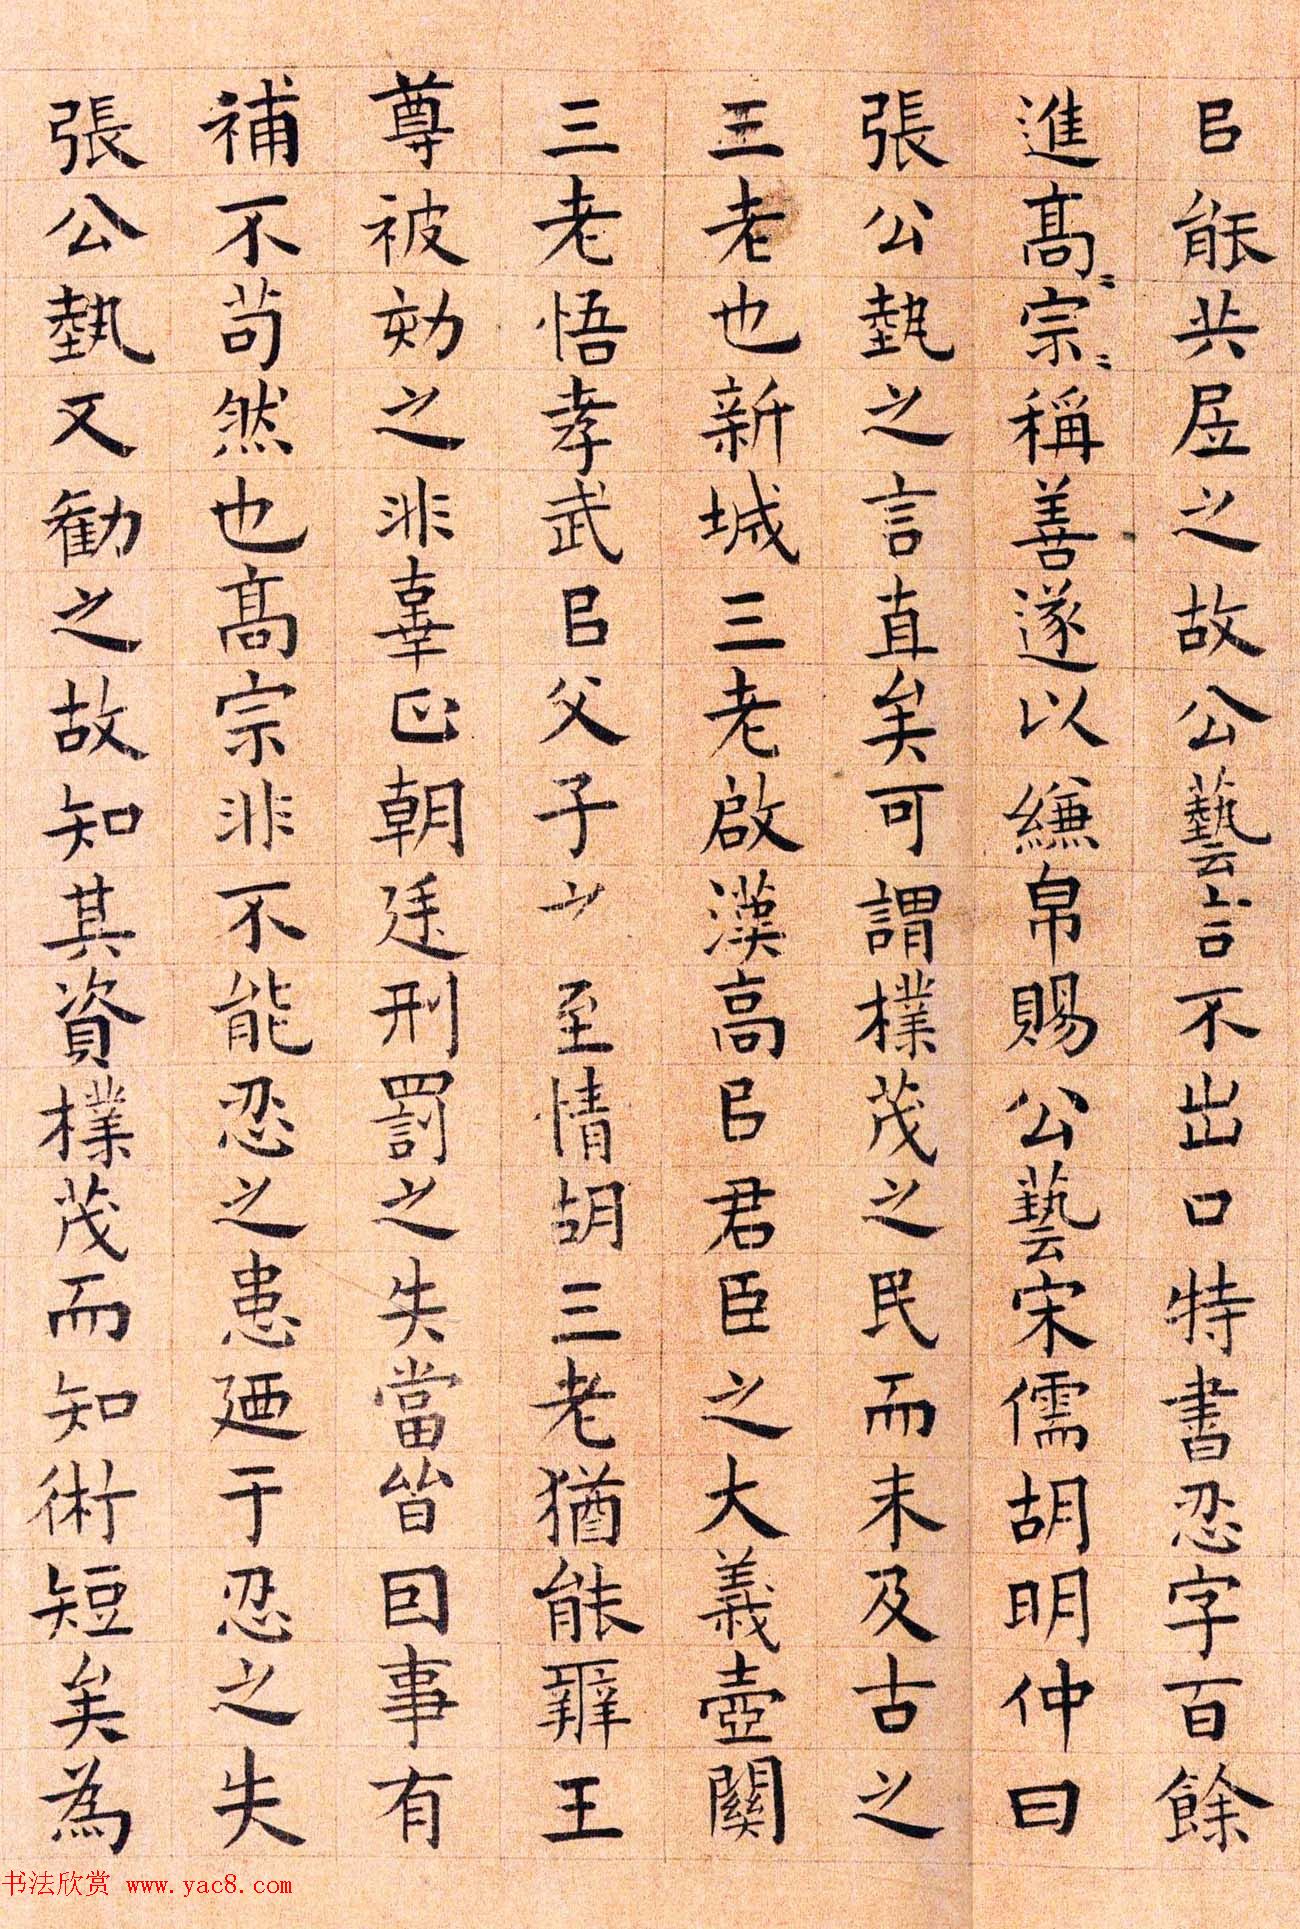 㠯能共居之故公藝言不出口特書忍字百餘
進高〻宗〻稱善遂以縑帛賜公藝宋儒胡明仲曰
張公埶之言直矣可謂樸茂之民而未及古之
三老也新城三老啟漢高㠯君臣之大義壺關
三老悟孝武㠯父子之至情胡三老猶能辯王
尊被劾之非辜正朝廷刑罰之失當皆因事有
補不苟然也高宗非不能忍之患廼于忍之失
張公埶又勸之故知其資樸茂而知術短矣為
书法欣赏 www.yac8.com